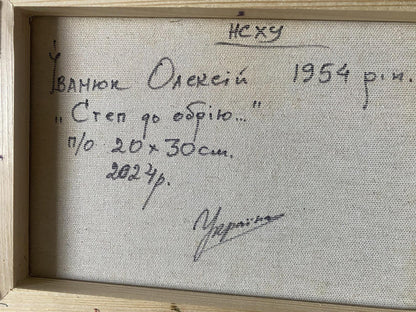 НСХУ
Іванюк Олексій 1954 р.н.
„Степ до обрію..."
п/о 20x30см.
2024р.
Україна